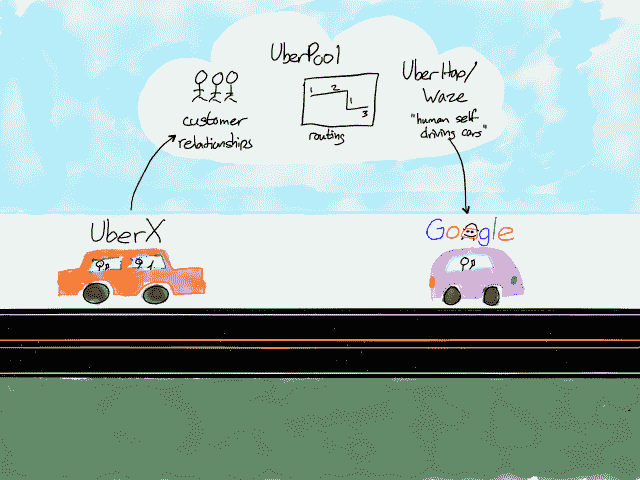 UberPool
customer
relationships
1 2
1
3
routing
UberHop/
Waze
"human self
driving cars"
UberX
Google